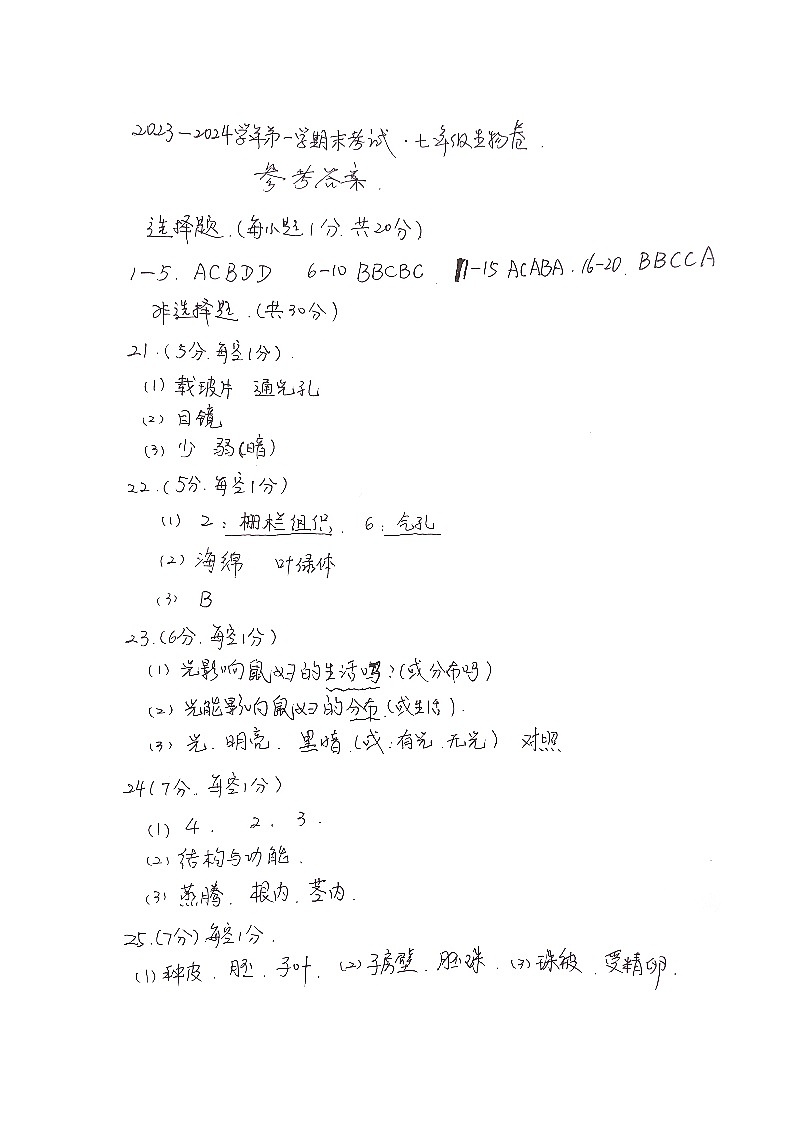 2023-2024学年第一学期末考试·七年级生物卷.
参考答案.
选择题.(每小题1分.共20分)
1-5. ACBDD 6-10 BBCBC. 11-15 ACABA. 16-20. BBCCA
非选择题.(共30分)
21.(5分.每空1分).
(1) 载玻片 通光孔
(2) 目镜
(3) 少 弱(暗)
22.(5分.每空1分)
(1) 2:栅栏组织. 6:气孔
(2) 海绵 叶绿体
(3) B
23.(6分.每空1分)
(1) 光影响鼠妇的生活吗?(或分布吗)
(2) 光能影响鼠妇的分布.(或生活).
(3) 光.明亮.黑暗.(或:有光.无光) 对照
24(7分.每空1分)
(1) 4. 2. 3.
(2) 结构与功能.
(3) 蒸腾.根内.茎内.
25.(7分)每空1分.
(1)种皮.胚.子叶.(2)子房壁.胚珠.(3)珠被.受精卵.